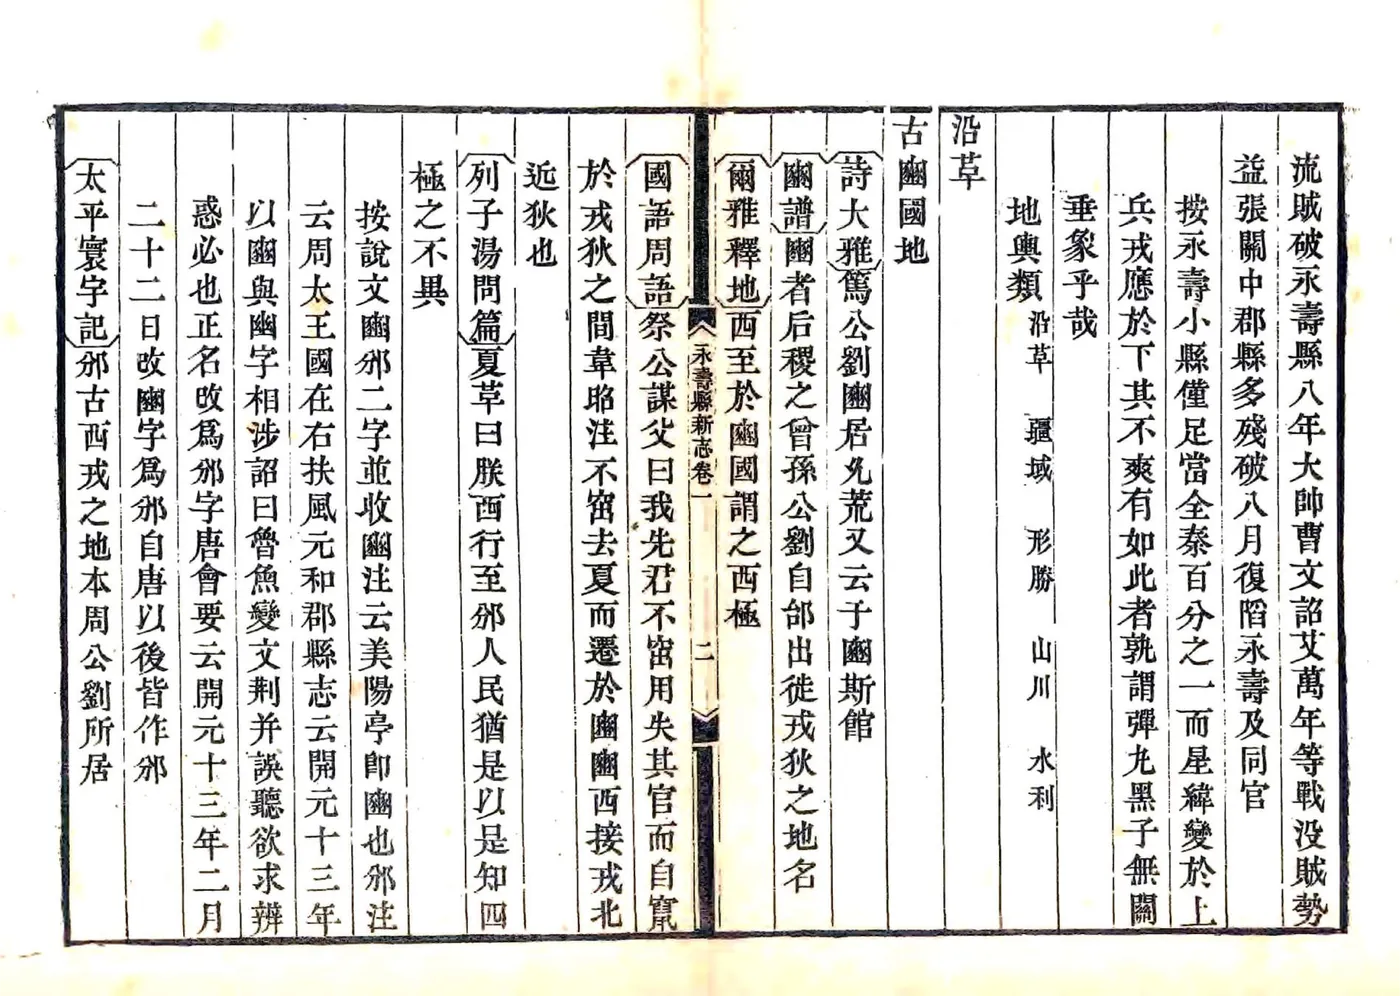 流賊破永壽縣八年大帥曹文詔艾萬年等戰没賊勢
益張關中郡縣多殘破八月復䧟永壽及同官
按永壽小縣僅足當全秦百分之一而星緯變於上
兵戎應於下其不爽有如此者孰謂彈丸黑子無關
垂象乎哉
地輿類 沿革 疆域 形勝 山川 水利
沿革
古豳國地
詩大雅篤公劉豳居允荒又云于豳斯館
豳譜豳者后稷之曾孫公劉自邰出徙戎狄之地名
爾雅釋地西至於豳國謂之西極
永壽縣新志卷一 二
國語周語祭公謀父曰我先君不窋用失其官而自竄
於戎狄之間韋昭注不窋去夏而遷於豳豳西接戎北
近狄也
列子湯問篇夏革曰朕西行至邠人民猶是以是知四
極之不異
按說文豳邠二字並收豳注云美陽亭卽豳也邠注
云周太王國在右扶風元和郡縣志云開元十三年
以豳與幽字相涉詔曰魯魚變文荆并誤聽欲求辨
惑必也正名改爲邠字唐會要云開元十三年二月
二十二日改豳字爲邠自唐以後皆作邠
太平寰宇記邠古西戎之地本周公劉所居